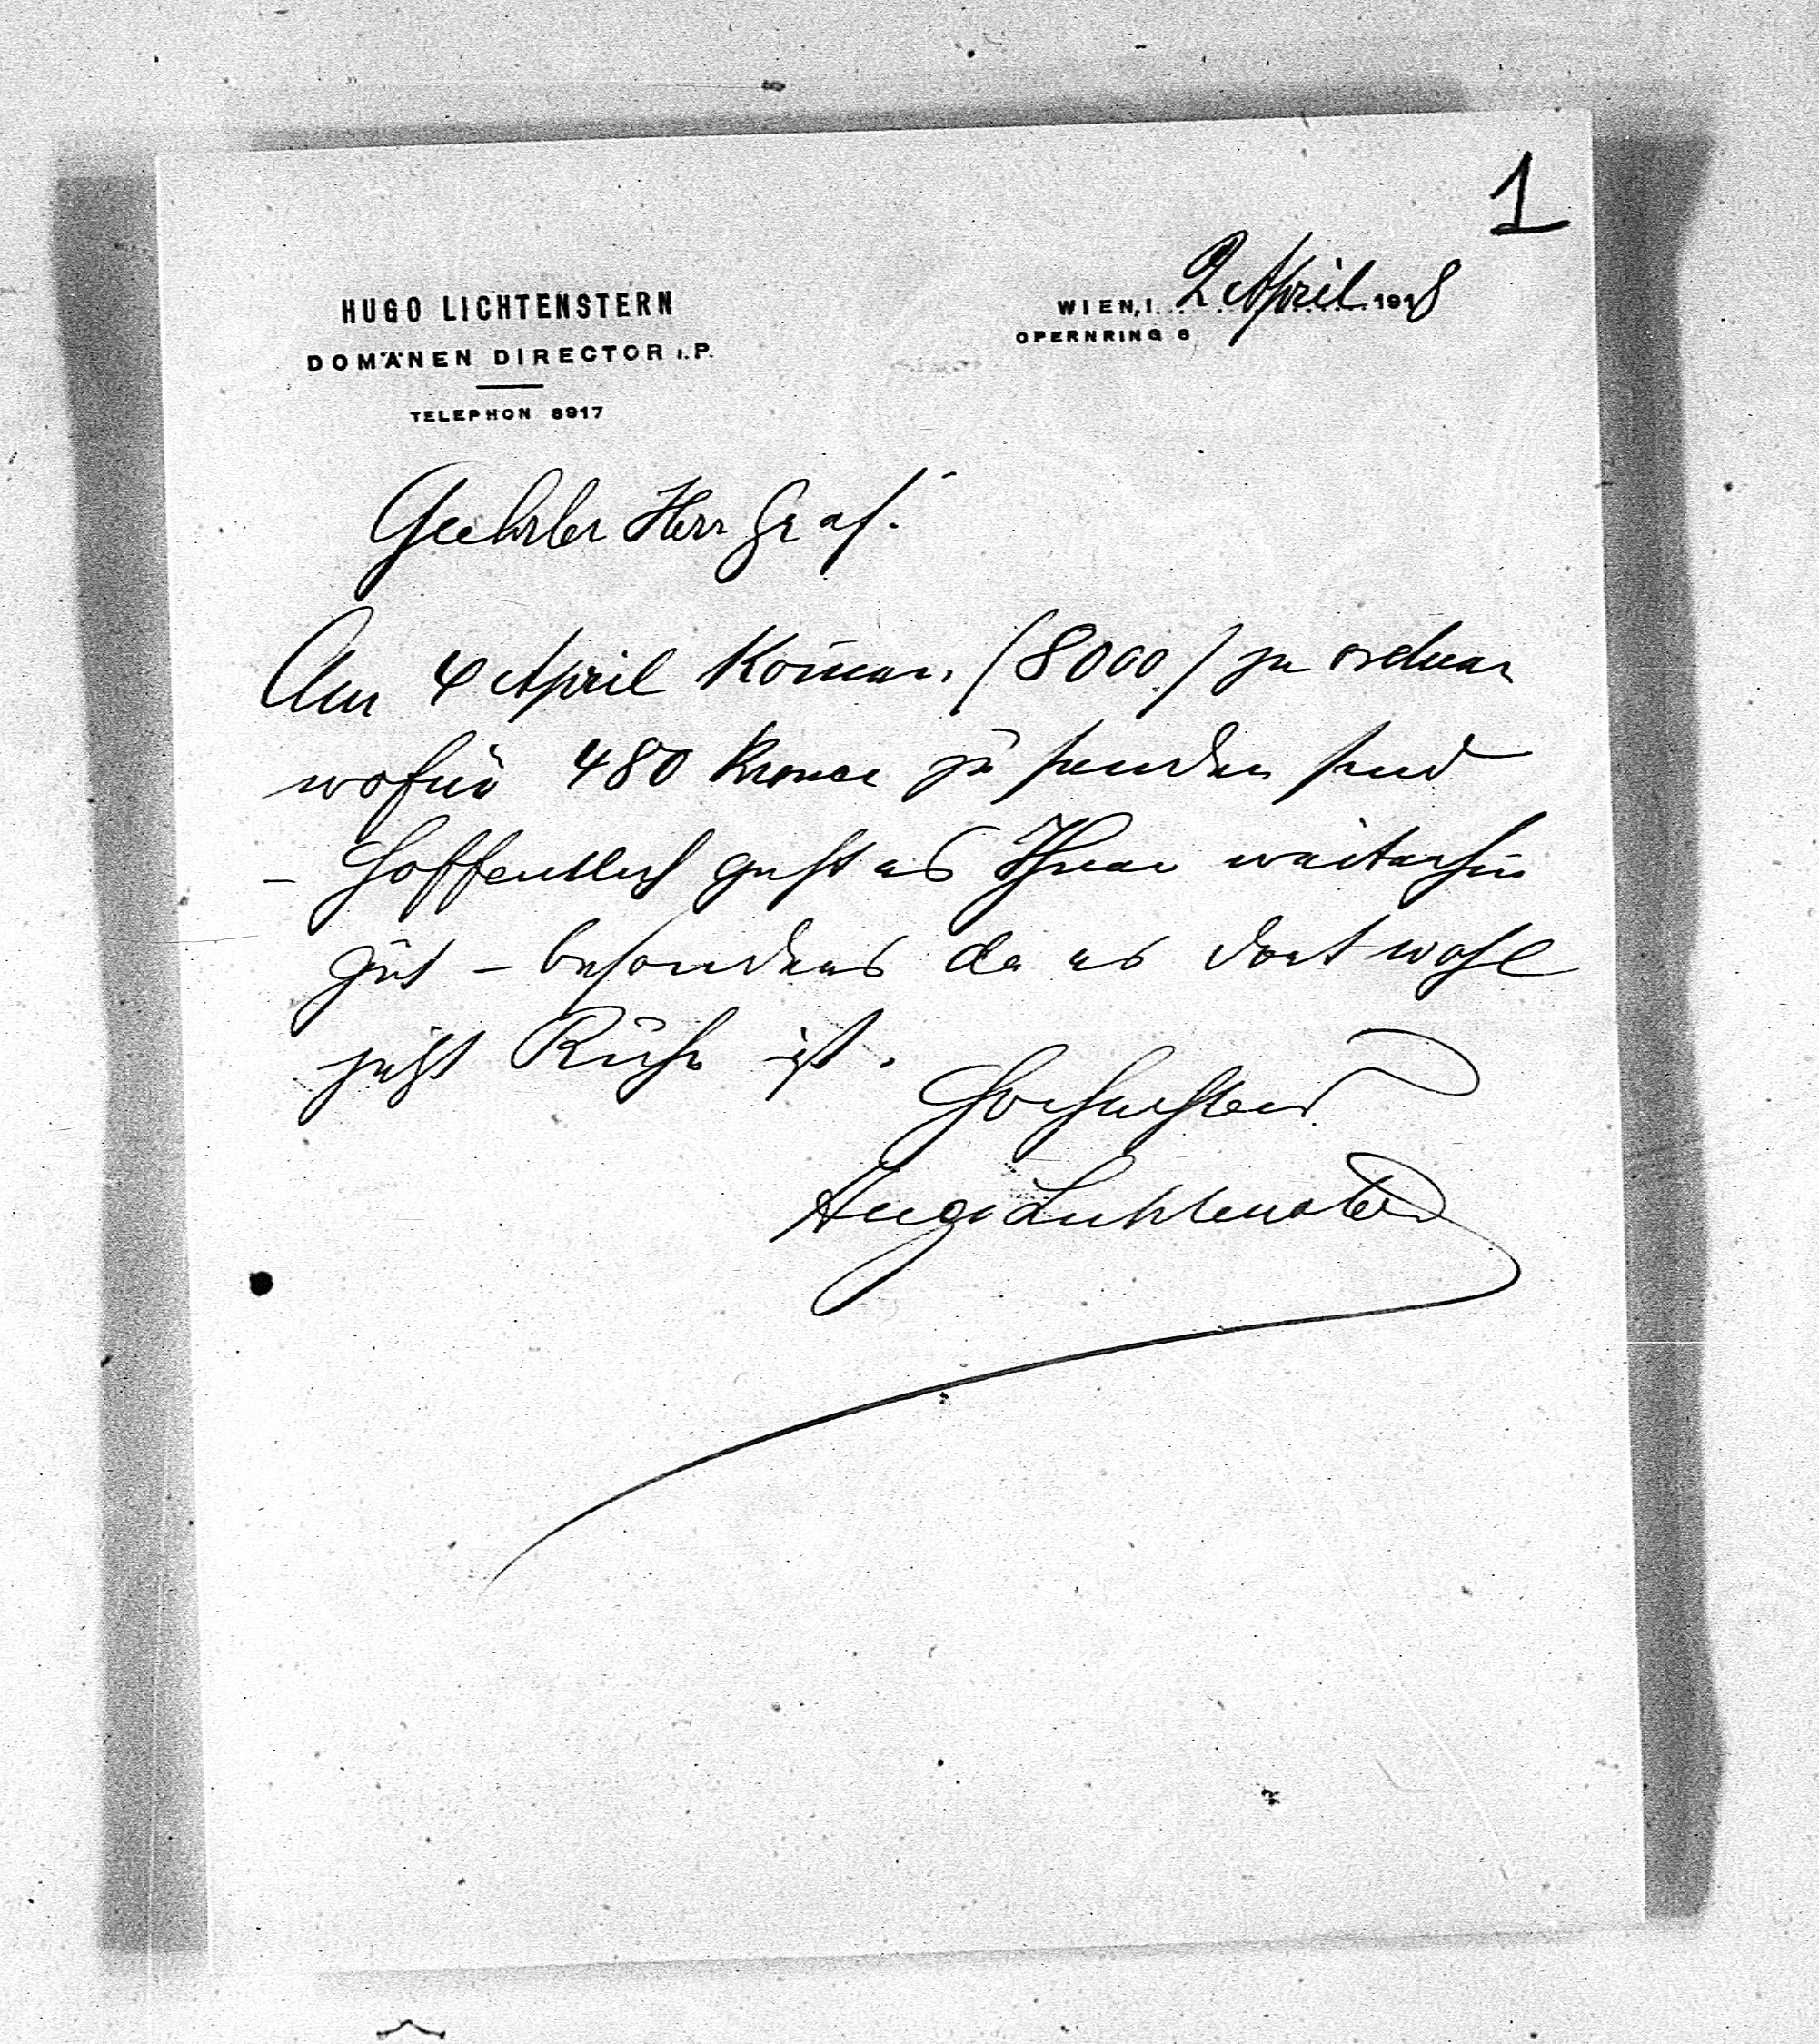 1
HUGO LICHTENSTERN
DOMÄNEN DIRECTOR i. P.
TELEPHON 8917
WIEN, I. 2 April 1918
OPERNRING 8
Geehrter Herr Graf.
Am 4 April kom̄en (8000) zu ordnen
wofür 480 Kronen zu senden sind
– Hoffentlich geht es Ihnen weiterhin
gut – besonders da es dort wohl
jetzt Ruhe ist.
Hochachtend
Hugo Lichtenstern